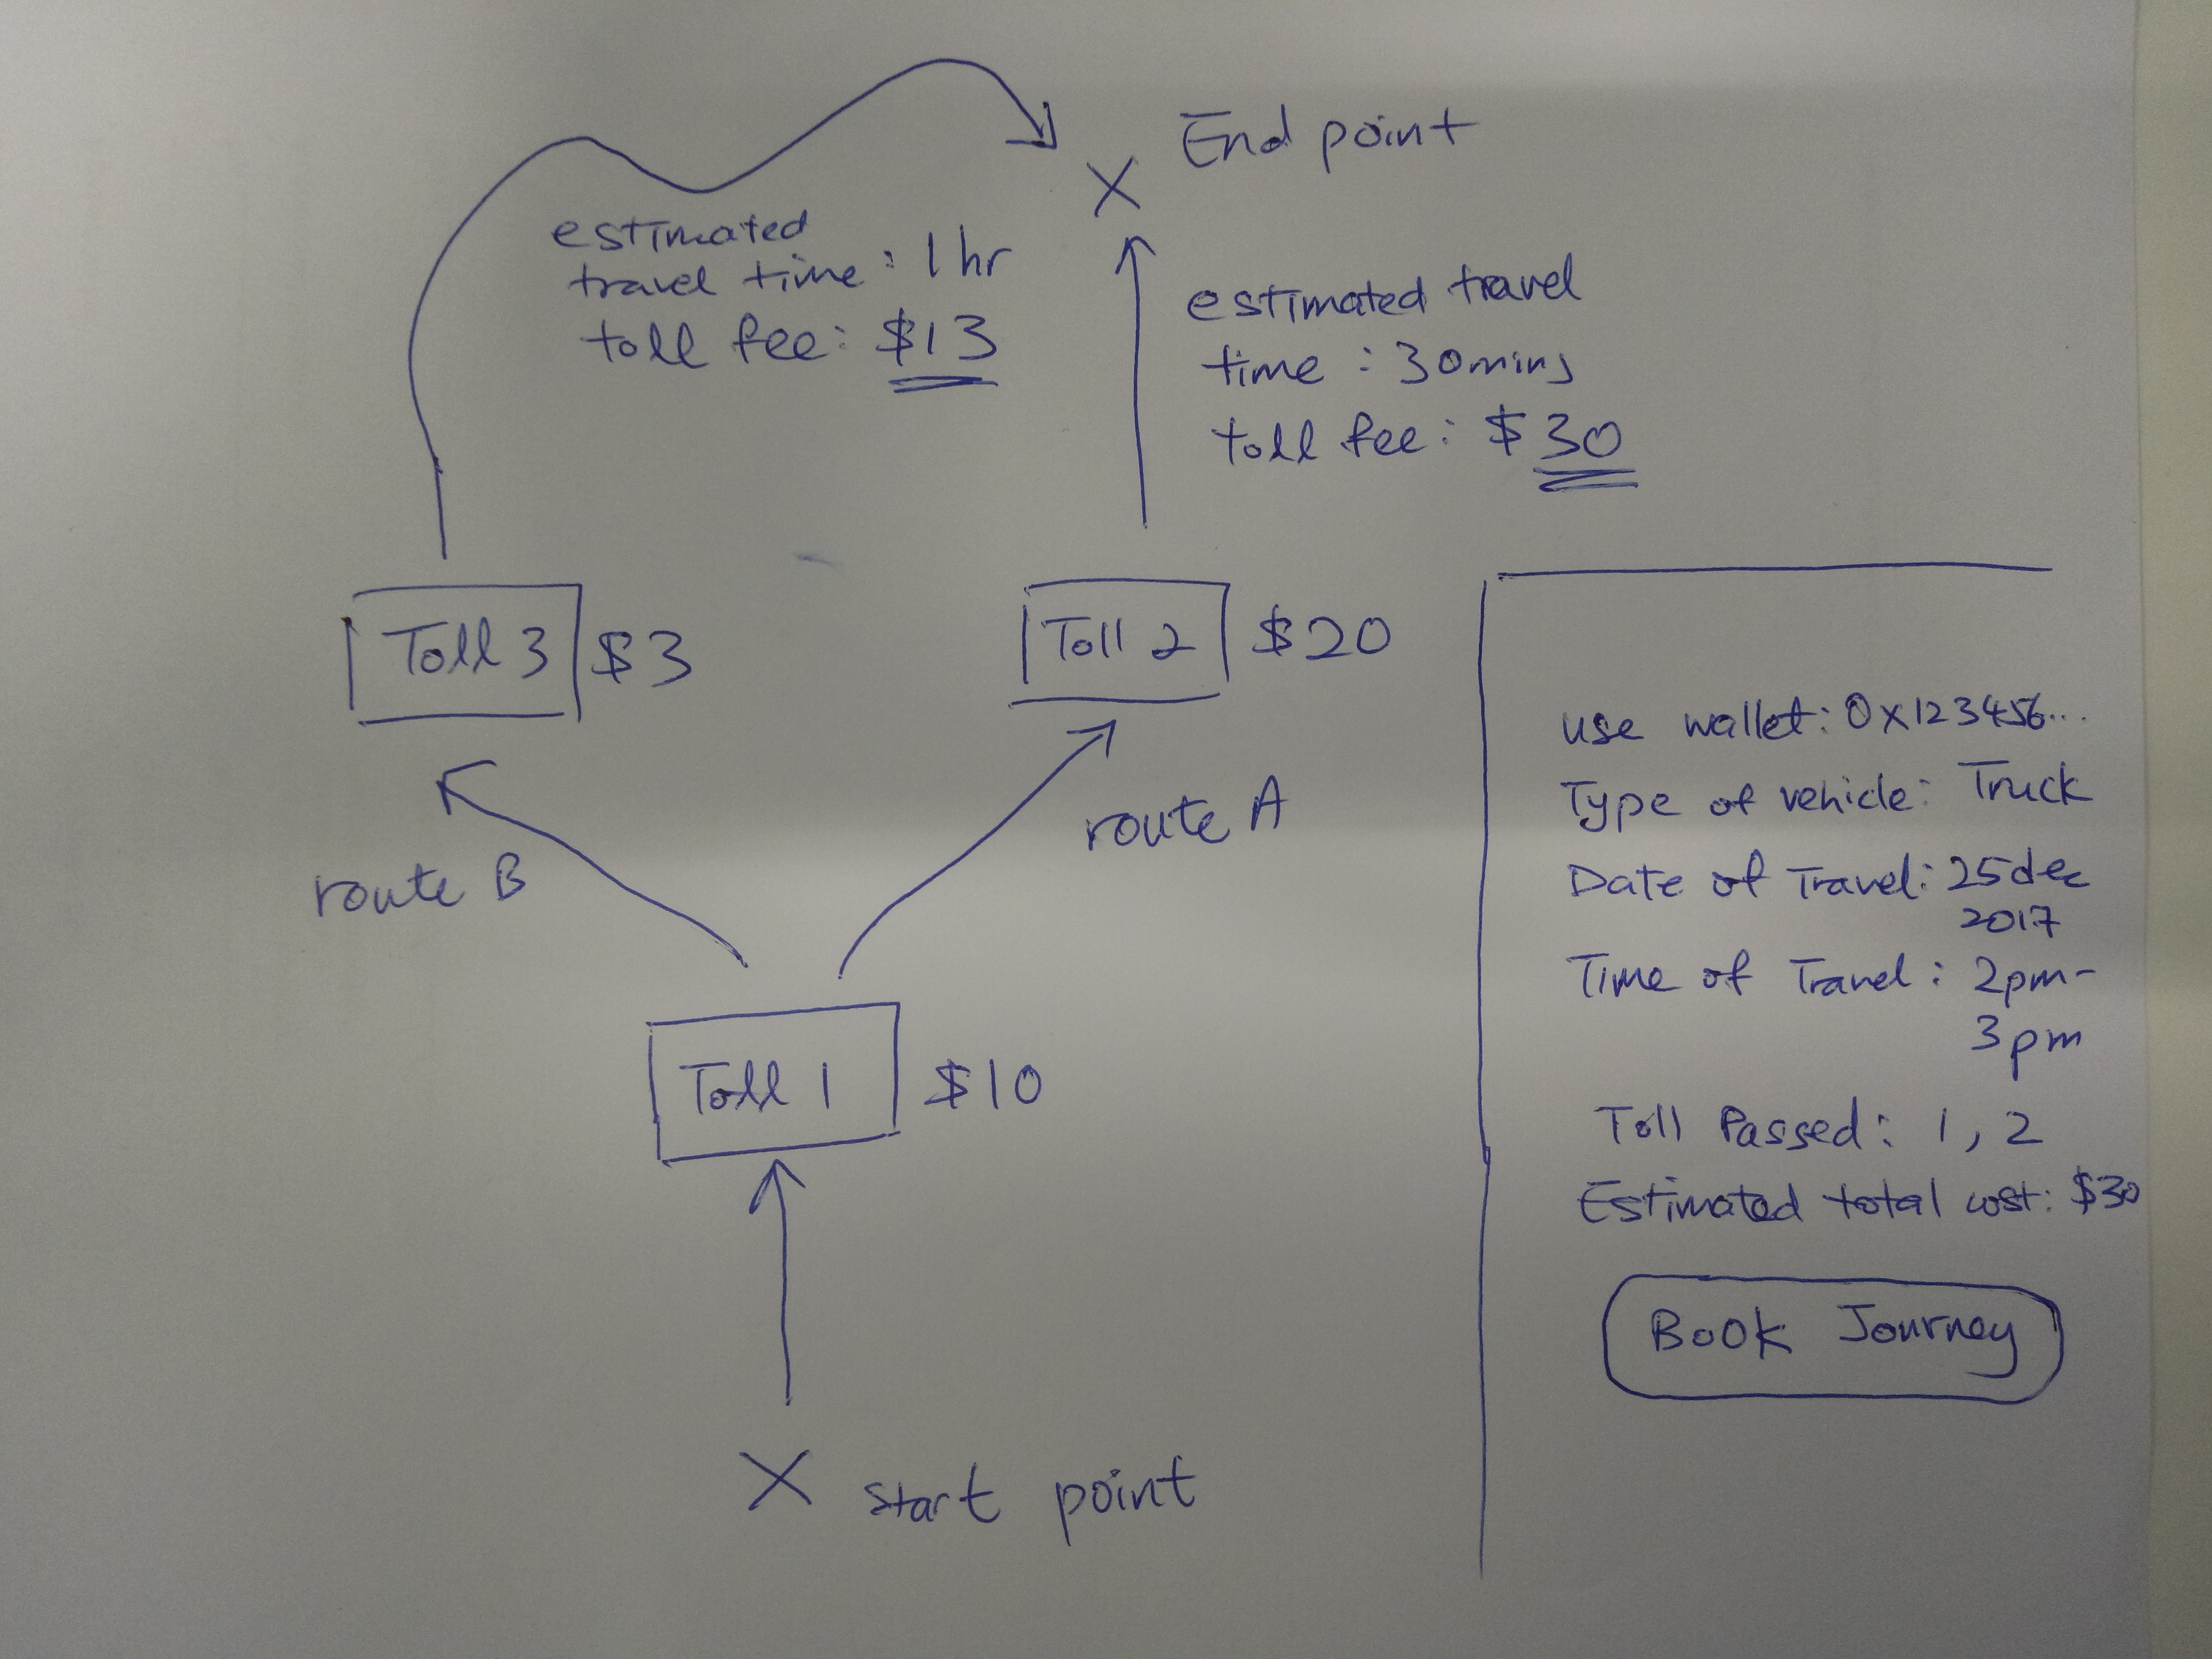 End point
estimated
travel time : 1 hr
toll fee: $13
estimated travel
time : 30mins
toll fee: $30
Toll 3 $3
Toll 2 $20
route B
route A
Toll 1 $10
start point
use wallet: 0x123456...
Type of vehicle: Truck
Date of Travel: 25 dec
2017
Time of Travel: 2pm-
3pm
Toll Passed: 1, 2
Estimated total cost: $30
Book Journey